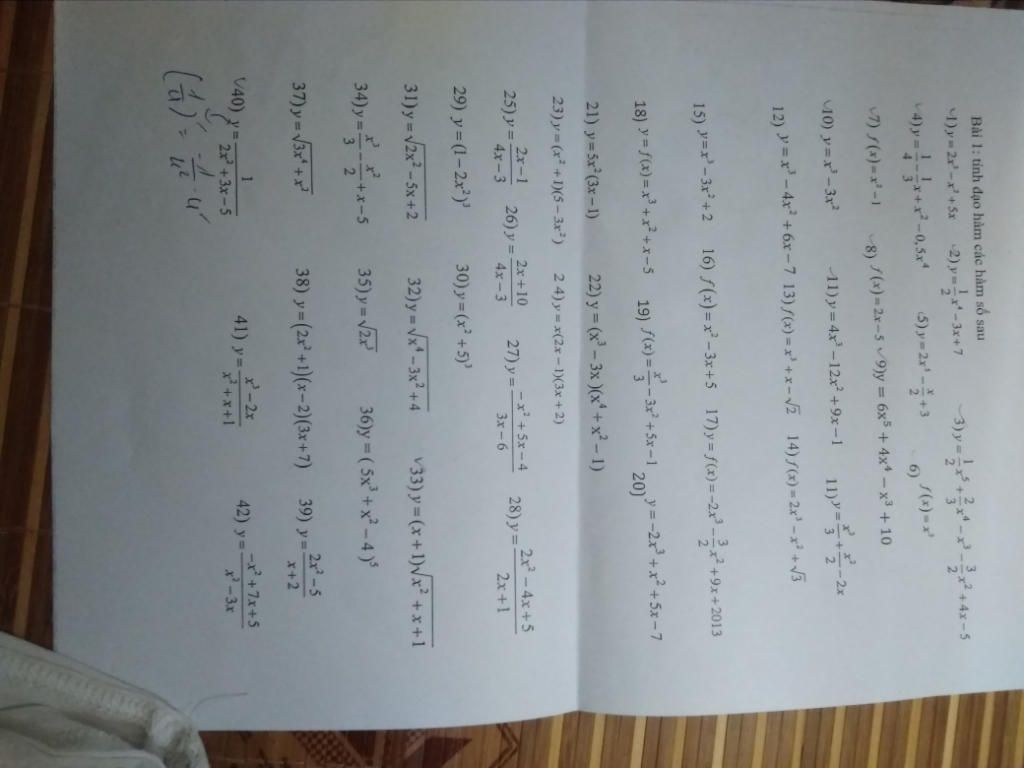 Bài 1: tính đạo hàm các hàm số sau
1) y = 2x⁴ - x³ + 5x 2) y = 1/2 x⁴ - 3x + 7 3) y = 1/2 x⁵ + 2/3 x⁴ - x³ - 3/2 x² + 4x - 5
4) y = 1/4 - 1/3 x + x² - 0,5x⁴ 5) y = 2x³ - x/2 + 3 6) f(x) = x³
7) f(x) = x² - 1 8) f(x) = 2x - 5 9) y = 6x⁵ + 4x⁴ - x³ + 10
10) y = x³ - 3x² 11) y = 4x³ - 12x² + 9x - 1 11) y = x³/3 + x²/2 - 2x
12) y = x³ - 4x² + 6x - 7 13) f(x) = x³ + x - √2 14) f(x) = 2x³ - x² + √3
15) y = x³ - 3x² + 2 16) f(x) = x² - 3x + 5 17) y = f(x) = -2x³ - 3/2 x² + 9x + 2013
18) y = f(x) = x³ + x² + x - 5 19) f(x) = x³/3 - 3x² + 5x - 1 20) y = -2x³ + x² + 5x - 7
21) y = 5x²(3x - 1) 22) y = (x³ - 3x)(x⁴ + x² - 1)
23) y = (x² + 1)(5 - 3x²) 2 4) y = x(2x - 1)(3x + 2)
25) y = (2x - 1)/(4x - 3) 26) y = (2x + 10)/(4x - 3) 27) y = (-x² + 5x - 4)/(3x - 6) 28) y = (2x² - 4x + 5)/(2x + 1)
29) y = (1 - 2x²)³ 30) y = (x² + 5)³
31) y = √(2x² - 5x + 2) 32) y = √(x⁴ - 3x² + 4) 33) y = (x + 1)√(x² + x + 1)
34) y = x³/3 - x²/2 + x - 5 35) y = √(2x³) 36) y = ( 5x³ + x² - 4 )⁵
37) y = √(3x⁴ + x²) 38) y = (2x² + 1)(x - 2)(3x + 7) 39) y = (2x² - 5)/(x + 2)
40) y = 1/(2x² + 3x - 5) 41) y = (x³ - 2x)/(x² + x + 1) 42) y = (-x² + 7x + 5)/(x² - 3x)
(1/u)' = -1/u² . u'